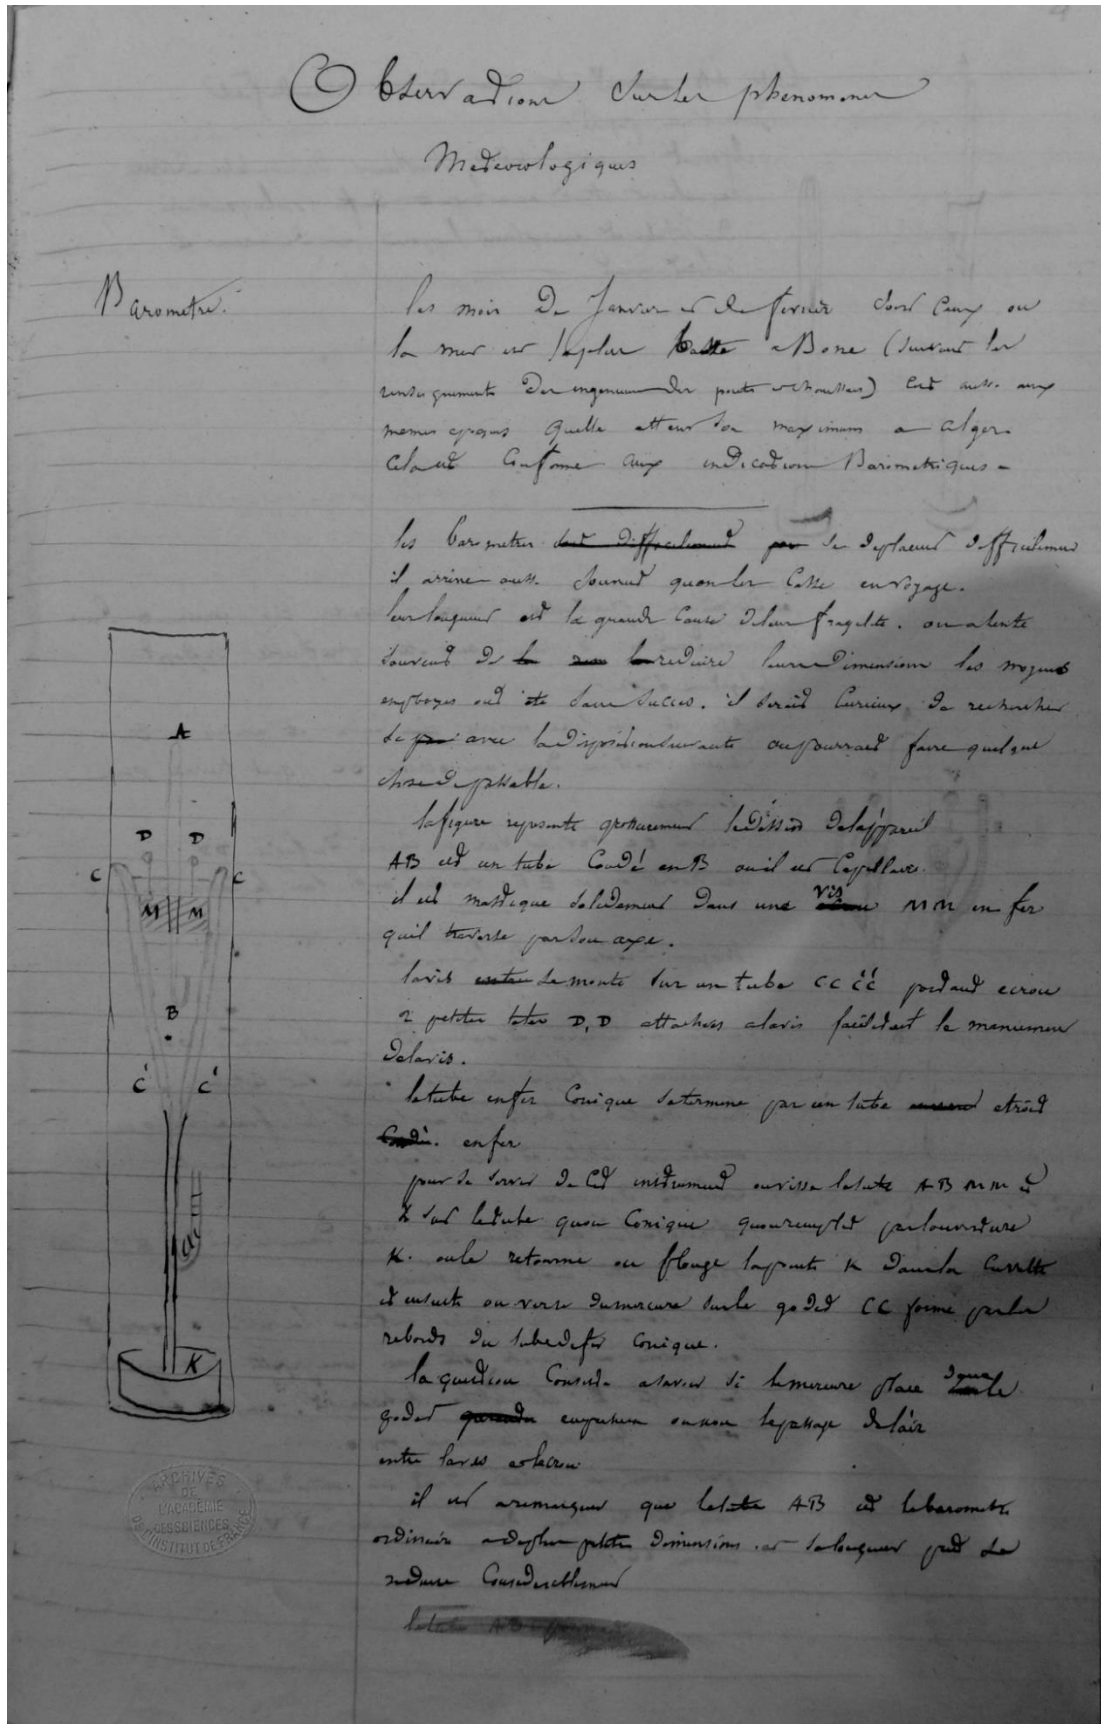 Observations sur les phenomenes
Meteorologiques
Barometre.
les mois De Janvier et de fevrier sont Ceux ou
la mer est la plus basse a Bone (suivant les
renseignements Des ingenieurs des ponts et chaussees) C'est aussi aux
memes epoques quelle atteint son maximum a alger.
Cela est Conforme aux indications Barometriques.
les barometres sont difficilement se deplacent difficilement
il arrive aussi souvent quon les Casse en voyage.
leur longueur est la grande Cause de leur fragilite. on a tente
souvent de la reduire leurs Dimensions les moyens
employes ont ete sans succes. il serait Curieux de rechercher
si avec la disposition suivante on pourrait faire quelque
chose de passable.
la figure represente grossierement le dessin de l'appareil
AB est un tube Coudé en B ou il est Capillaire.
il est mastique solidement dans une vis MM en fer
quil traverse par son axe.
la vis entre se monte sur un tube CC C'C' portant ecrou
2 petites tetes D, D attachees a la vis facilitent le maniement
de la vis.
le tube en fer Conique se termine par un tube etroit
Coudé. en fer
pour se servir de Cet instrument on visse le tube AB MM et
sur le tube Conique quon remplit par louverture
K. on le retourne on plonge la pointe K dans la Cuvette
et ensuite on verse du mercure sur le godet CC forme par les
rebords du tube de fer conique.
la question Consiste a savoir si le mercure place dans le
godet empechera ou non le passage de l'air
entre la vis et lecrou
il est a remarquer que le tube AB est le barometre
ordinaire a de plus petites Dimensions et sa longueur peut se
reduire Considerablement
le tube AB
A
D D
C C
M M
B
C' C'
K
ARCHIVES
DE
L'ACADÉMIE
DES SCIENCES
DE L'INSTITUT DE FRANCE